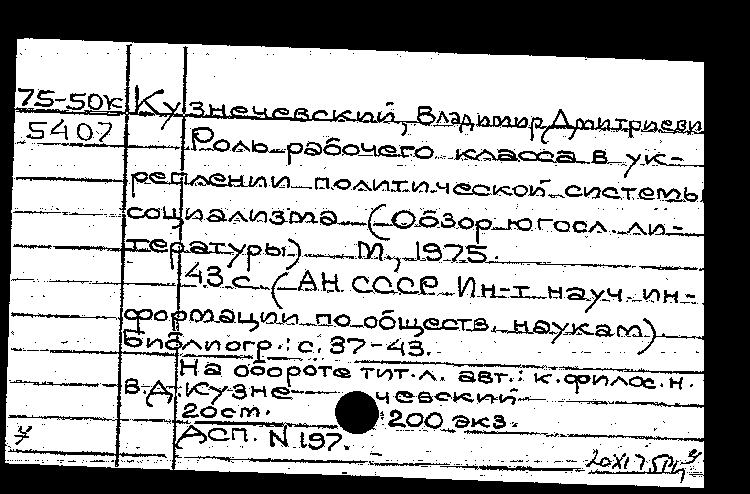 75-50к Кузнечевский, Владимир Дмитриеви
5407 Роль рабочего класса в ук-
реплении политической системы
социализма (Обзор югосл. ли-
тературы) М., 1975.
43 с (АН СССР Ин-т науч. ин-
формации по обществ. наукам).
Библиогр.: с. 37-43.
На обороте тит. л. авт.: к. филос. н.
В.Д. Кузне чевский
20 ст. 200 экз.
Асп. N 197.